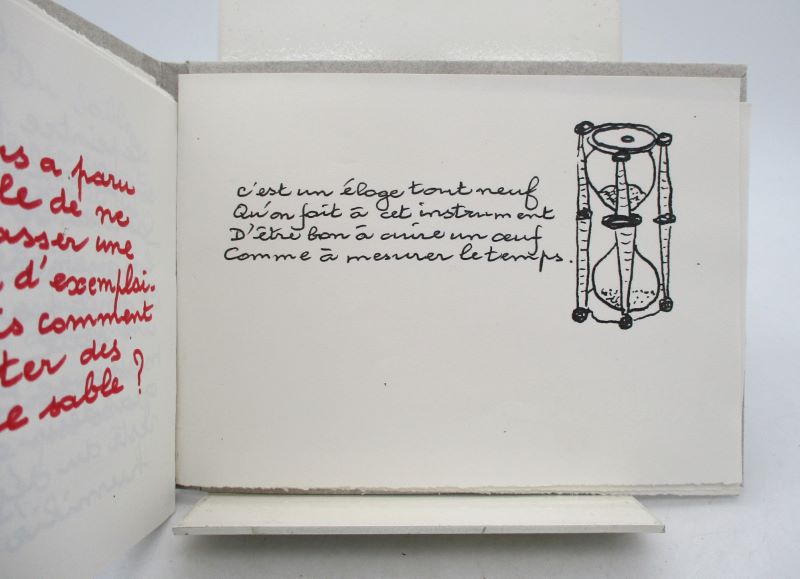 a paru
de ne
asser une
d'exemplai-
comment
ter des
sable ?
c'est un éloge tout neuf
Qu'on fait à cet instrument
D'être bon à cuire un œuf
Comme à mesurer le temps.